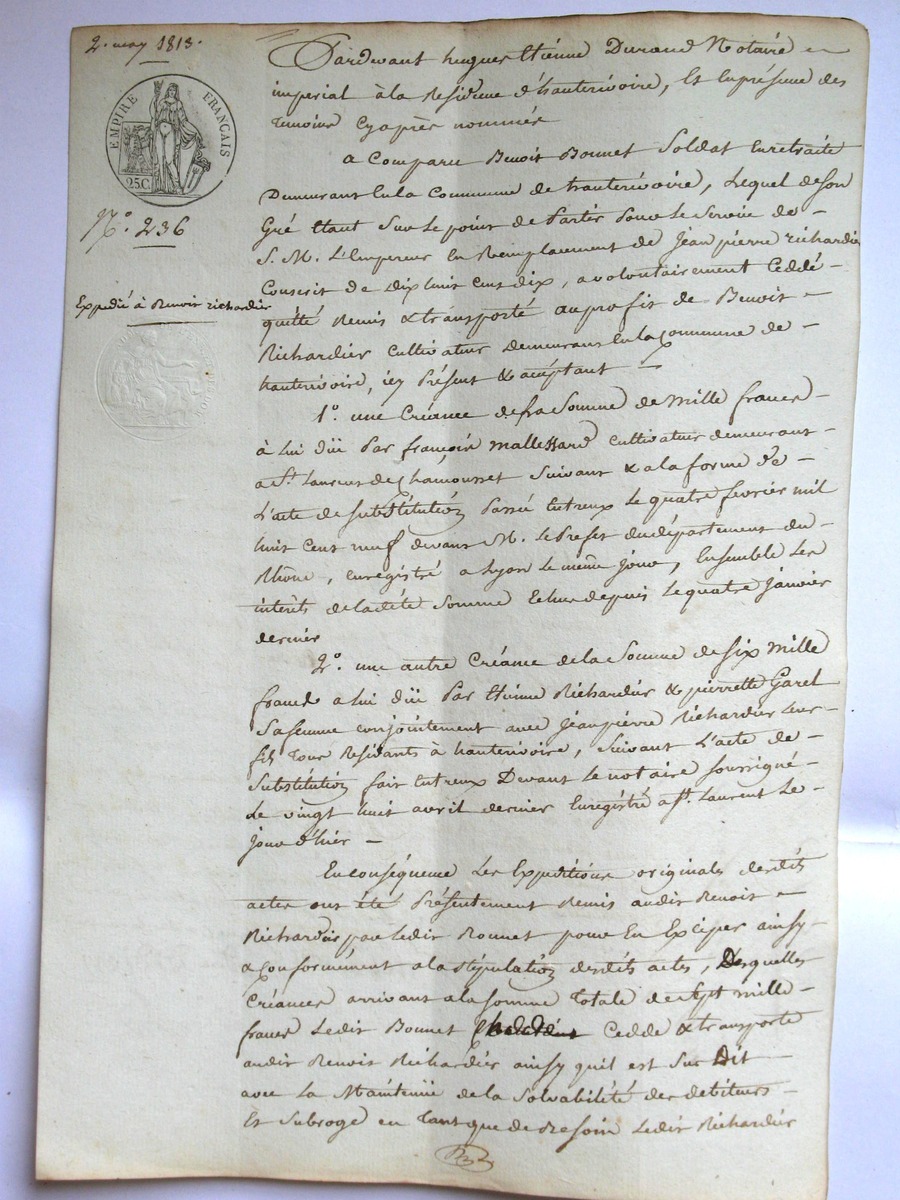 2. may 1813.
EMPIRE FRANÇAIS
25C
N°. 236
Expédié à Benoit richardier
Pardevant hugues Etienne Durand Notaire
imperial à la Residence d'hauterivoire, Et En présence des
Temoins Cyaprès nommés
a Comparu Benoit Bonnet Soldat En retraite
Demeurant En la Commune de hauterivoire, Lequel de Son
Gré Etant Sur le point de Partir Pour le Service de
S. M. L'Empereur En Remplacement de Jean pierre richardier
Conscrit de dix huit cens dix, a volontairement Ceddé
quitté Remis & transporté au profit de Benoit
Richardier cultivateur Demeurant En la Commune de
hauterivoire, icy Présent & acceptant
1°. une Créance de la Somme de Mille francs
à lui düe Par françois Mallessard cultivateur demeurant
a St. Laurent de Chamousset Suivant & a la forme de
L'acte de Substitution Passé Entreux Le quatre fevrier mil
huit Cent neuf devant M. le Prefet du département du
Rhône, Enregistré a Lyon le même jour, Ensemble Les
intérêts de la dite Somme Echus depuis Le quatre Janvier
dernier
2°. une autre Créance de la Somme de Six Mille
francs a lui düe Par Etienne Richardier & pierrette Garel
Sa femme conjointement avec Jean pierre Richardier Leur
fils Tous Residants à hauterivoire, Suivant L'acte de
Substitution fait Entreux Devant Le notaire Soussigné
Le vingt huit avril dernier Enregistré a St. Laurent Le
jour d'hier
En conséquence Les Expéditions originales desdits
actes ont été Présentement Remis audit Benoit
Richardier par Ledit Bonnet pour En Exciper ainsy
& Conformément a la Stipulation desdits actes, Desquelles
Créances arrivant a la Somme Totale de Sept mille
francs Ledit Bonnet Cedde & transporte
audit Benoit Richardier ainsy quil est Sur Dit
avec La Maintenüe de la Solvabilité des debiteurs
Et Subroge en Tant que de Besoin Ledit Richardier